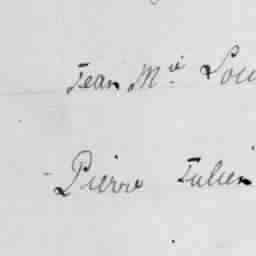 Jean M.ie Lou
- Pierre Julien